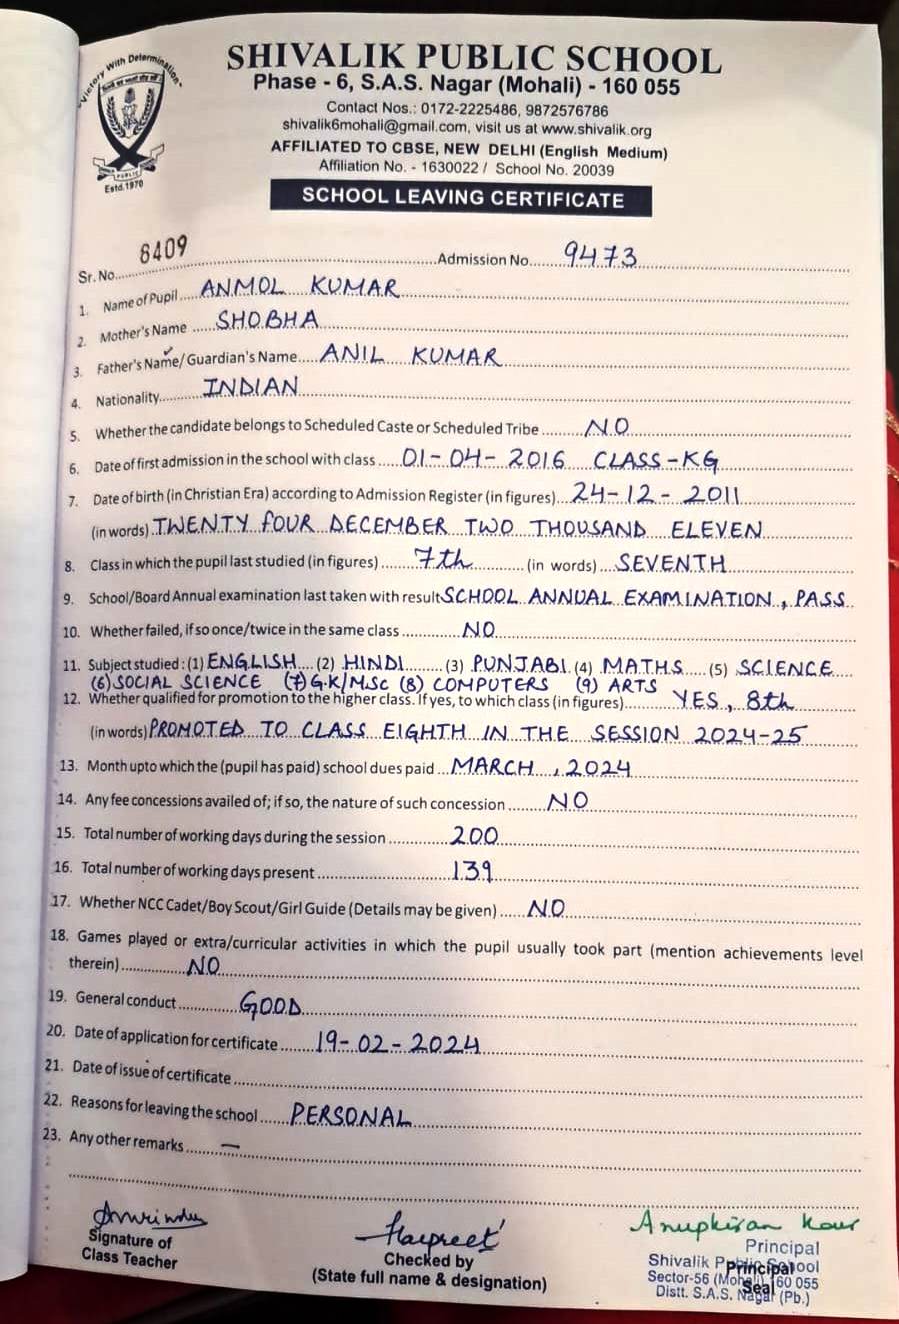 "Victory With Determination"
PUBLIC
Estd.1970
SHIVALIK PUBLIC SCHOOL
Phase - 6, S.A.S. Nagar (Mohali) - 160 055
Contact Nos.: 0172-2225486, 9872576786
shivalik6mohali@gmail.com, visit us at www.shivalik.org
AFFILIATED TO CBSE, NEW DELHI (English Medium)
Affiliation No. - 1630022 / School No. 20039
SCHOOL LEAVING CERTIFICATE
Sr. No. 6409 Admission No. 9473
1. Name of Pupil ANMOL KUMAR
2. Mother's Name SHOBHA
3. Father's Name/Guardian's Name ANIL KUMAR
4. Nationality INDIAN
5. Whether the candidate belongs to Scheduled Caste or Scheduled Tribe NO
6. Date of first admission in the school with class 01-04-2016 CLASS-KG
7. Date of birth (in Christian Era) according to Admission Register (in figures) 24-12-2011
(in words) TWENTY FOUR DECEMBER TWO THOUSAND ELEVEN
8. Class in which the pupil last studied (in figures) 7th (in words) SEVENTH
9. School/Board Annual examination last taken with result SCHOOL ANNUAL EXAMINATION, PASS
10. Whether failed, if so once/twice in the same class NO
11. Subject studied : (1) ENGLISH (2) HINDI (3) PUNJABI (4) MATHS (5) SCIENCE
(6) SOCIAL SCIENCE (7) G.K/M.Sc (8) COMPUTERS (9) ARTS
12. Whether qualified for promotion to the higher class. If yes, to which class (in figures) YES, 8th
(in words) PROMOTED TO CLASS EIGHTH IN THE SESSION 2024-25
13. Month upto which the (pupil has paid) school dues paid MARCH, 2024
14. Any fee concessions availed of; if so, the nature of such concession NO
15. Total number of working days during the session 200
16. Total number of working days present 139
17. Whether NCC Cadet/Boy Scout/Girl Guide (Details may be given) NO
18. Games played or extra/curricular activities in which the pupil usually took part (mention achievements level
therein) NO
19. General conduct GOOD
20. Date of application for certificate 19-02-2024
21. Date of issue of certificate
22. Reasons for leaving the school PERSONAL
23. Any other remarks —
Amrinder Harpreet Anupkiran Kaur
Signature of
Class Teacher
Checked by
(State full name & designation)
Principal
Seal
Principal
Shivalik Public School
Sector-56 (Mohali) 160 055
Distt. S.A.S. Nagar (Pb.)